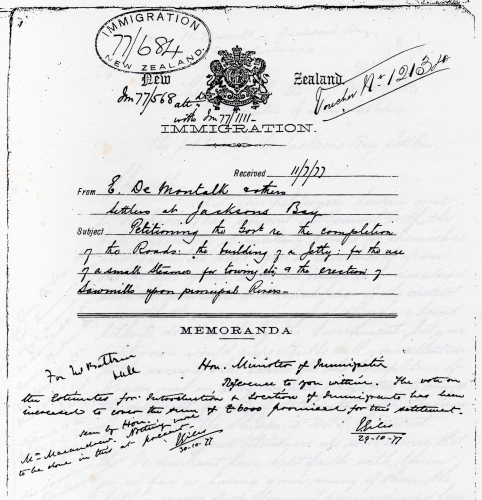 IMMIGRATION
77/684
NEW ZEALAND.
New Zealand.
Im 77/568 attd
with Im 77/1111
Voucher No
IMMIGRATION.
Received 11/7/77
From E. De Montalk & others
settlers at Jacksons Bay
Subject Petitioning the Govt re the completion
of the Roads: the building of a Jetty: for the use
of a small Steamer for towing, etc & the erection of
Sawmills upon principal Rivers
MEMORANDA
For Mr
Hon. Minister of Immigration
Reference to you within. The vote on
the Estimates for Introduction & Location of Immigrants has been
increased to cover the sum of £6000 promised for this settlement.
seen by Hon.
Mr Macandrew. Nothing more
to be done in this at present.
30-10-77
29-10-77